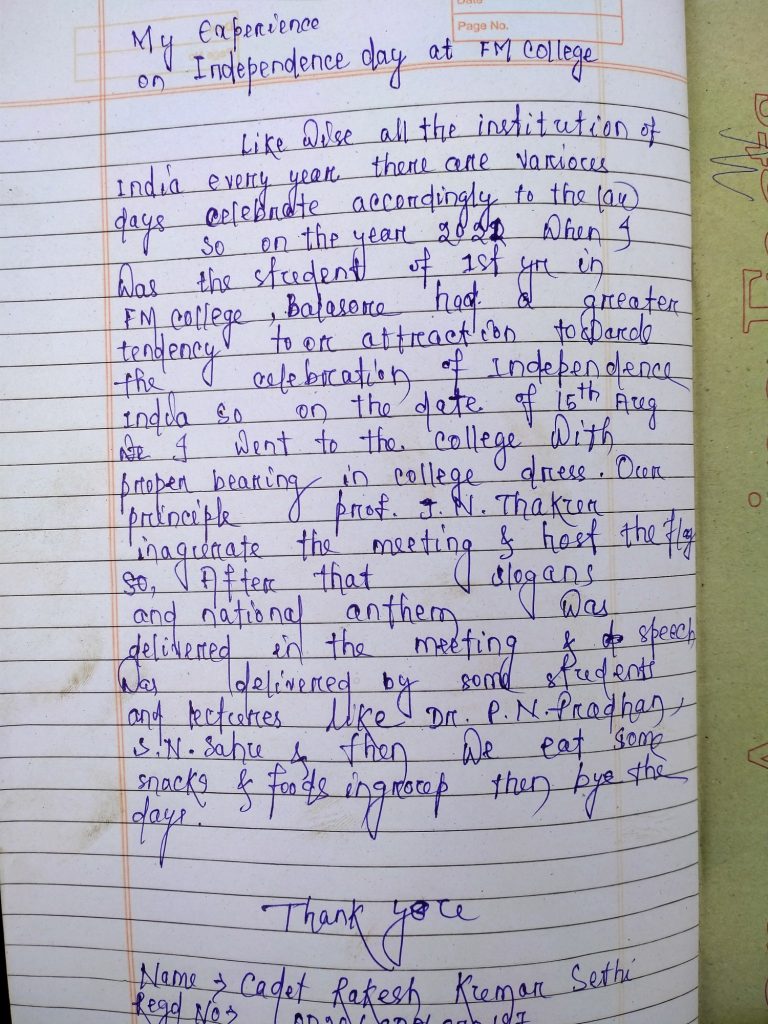 Date
Page No.
My Experience
on Independence day at FM College
Like Wise all the institution of
India every year there are various
days celebrate accordingly to the law
so on the year 2021 When I
Was the student of 1st yr in
FM College, Balasore had a greater
tendency to or attraction toWards
the celebration of Independence
India so on the date of 15th Aug
We I Went to the college With
proper bearing in college dress. Our
principle prof. J. N. Thakur
inagurate the meeting & host the flg
so, After that slogans
and national anthem Was
delivered in the meeting & speech
Was delivered by some students
and lectures Like Dr. P. N. Pradhan,
S. N. Sahu & then We eat some
snacks & foods ingroup then bye the
days.
Thank you
Name → Cadet Rakesh Kumar Sethi
Regd No →